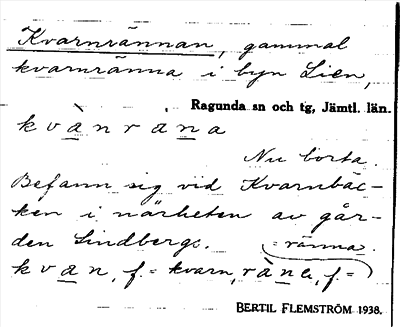 Kvarnrännan, gammal
kvarnränna i byn Lien,
Ragunda sn och tg, Jämtl. län.
kvànràna
Nu borta.
Befann sig vid Kvarnbäc-
ken i närheten av går-
den Lindbergs.
= ränna.
kvan, f. = kvarn, 
BERTIL FLEMSTRÖM 1938.